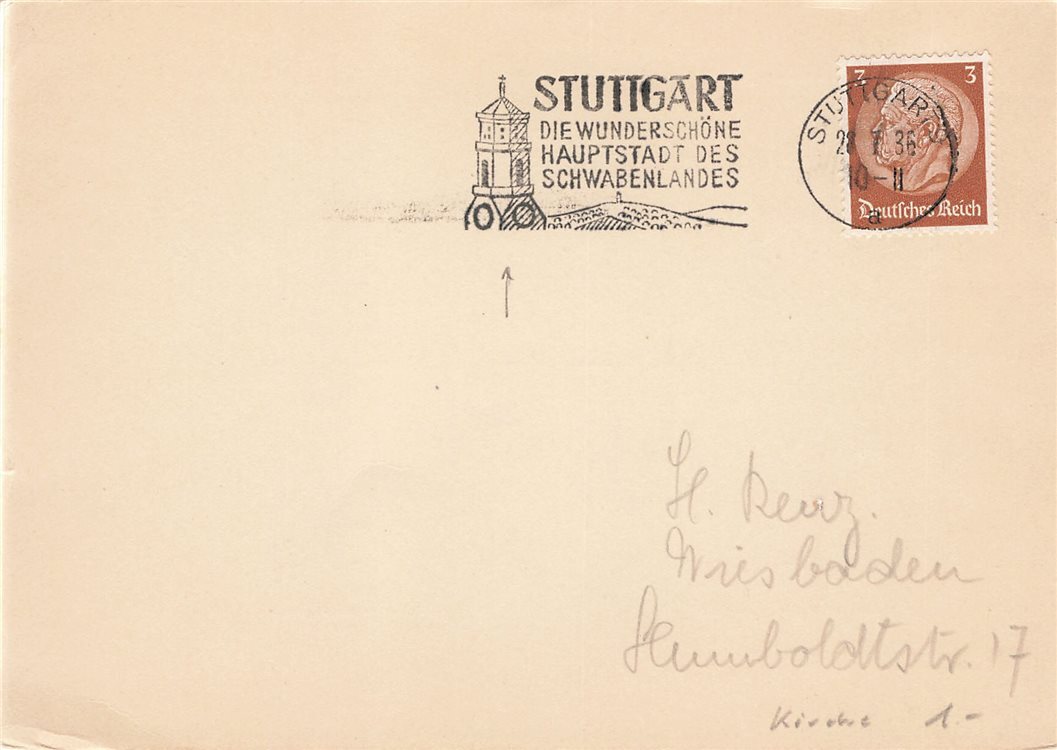 STUTTGART
DIE WUNDERSCHÖNE
HAUPTSTADT DES
SCHWABENLANDES
3 3
STUTTGART 9
28 7 36
10-11
a
Deutsches Reich
H. Renz.
Wiesbaden
Humboldtstr. 17
Kirche 1.-